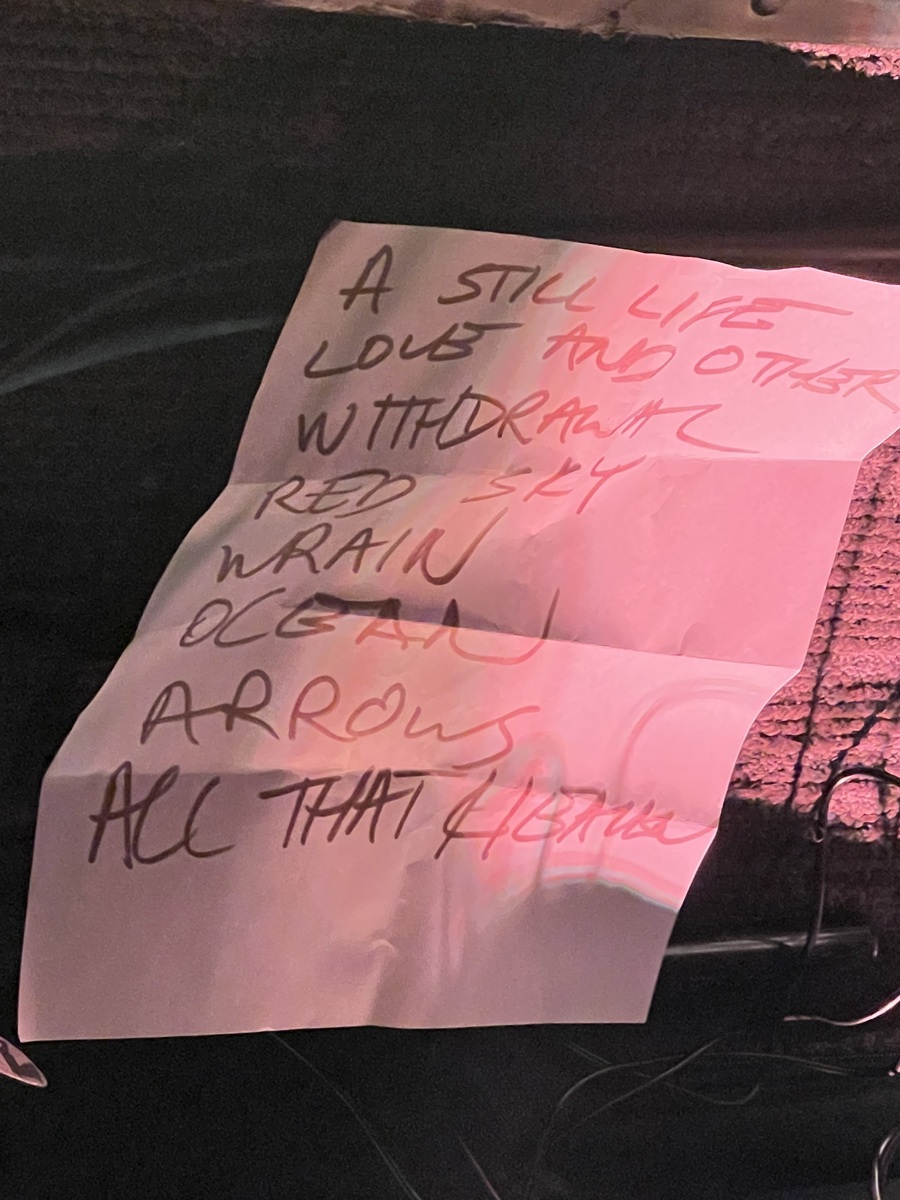 A STILL LIFE
LOVE AND OTHER
WITHDRAWAL
RED SKY
WRAIN
OCEAN
ARROWS
ALL THAT